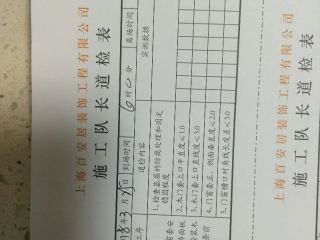 上海百安居装饰工程有限公司
施工队长道检表
到场时间 6时0分 离场时间
工序 道检内容 实测数据
1.检查基层防腐处理和固定
稳固程度
2.木门套上口平直度≤1.0
3.木门套垂直度≤3.0
4.门窗套正、侧面垂直度≤2.0
5.门窗槽口对角线长度差≤3.0
上海百安居装饰工程有限公司
施工队长道检表